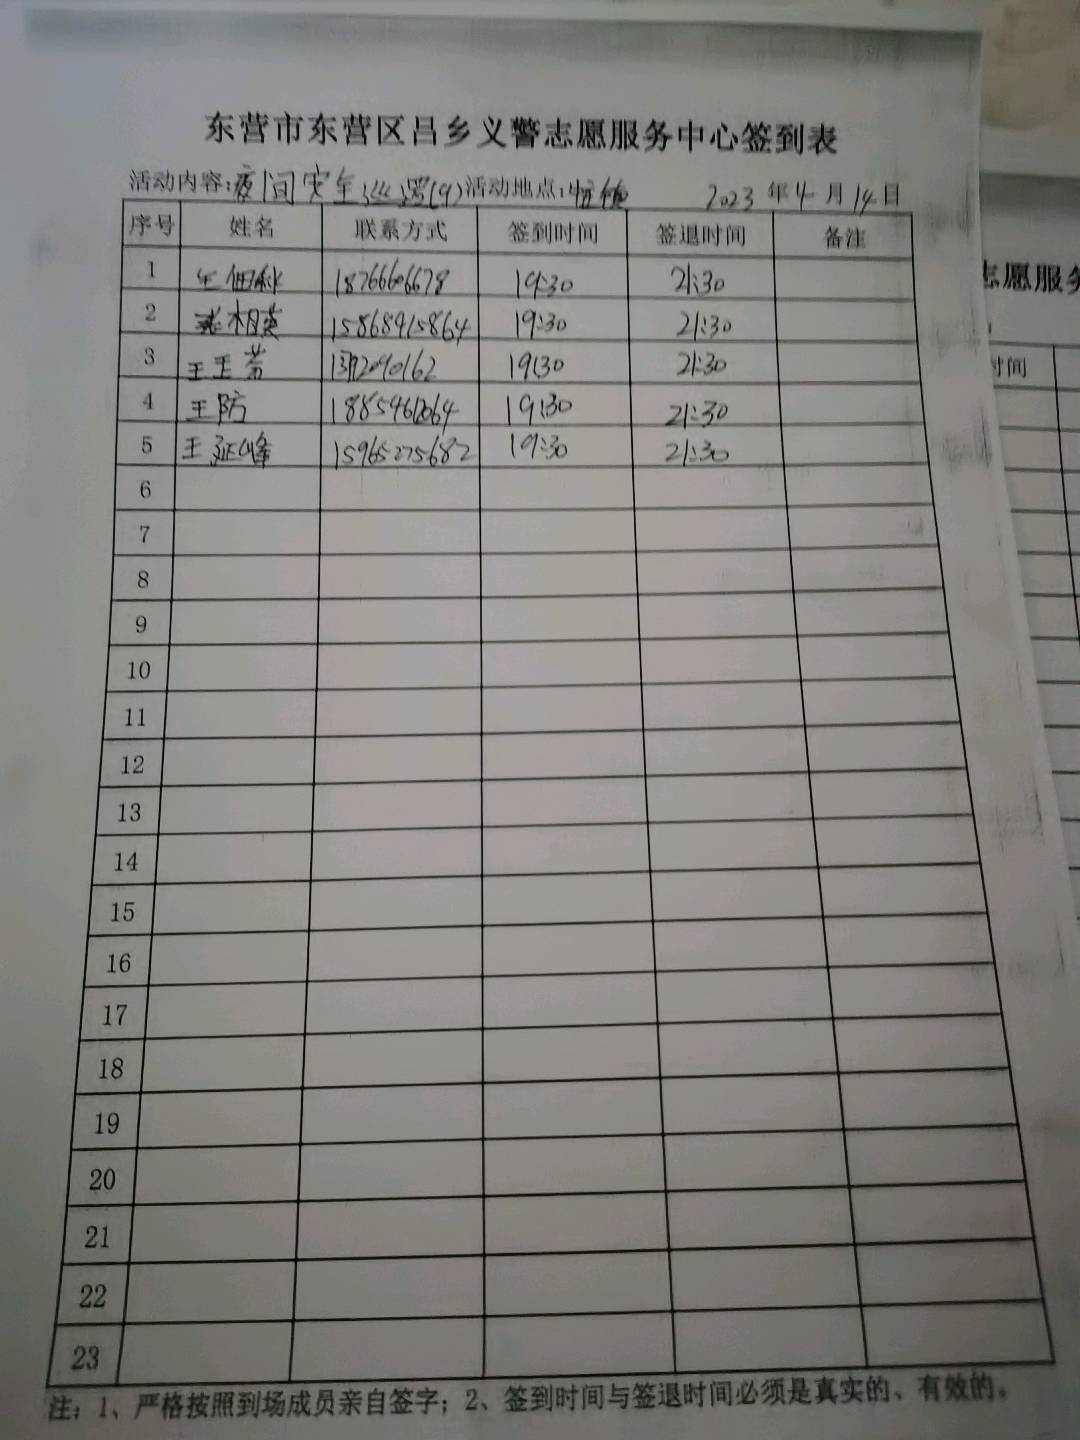 东营市东营区吕乡义警志愿服务中心签到表
活动内容:夜间安全巡逻(9)活动地点:恒德 2023 年 4 月 14 日
序号 姓名 联系方式 签到时间 签退时间 备注
1 18766606678 19:30 21:30
2 15868915864 19:30 21:30
3 王玉芳 19:30 21:30
4 王防 19:30 21:30
5 王延峰 15965275682 19:30 21:30
6
7
8
9
10
11
12
13
14
15
16
17
18
19
20
21
22
23
注:1、严格按照到场成员亲自签字;2、签到时间与签退时间必须是真实的、有效的。
志愿服务
时间